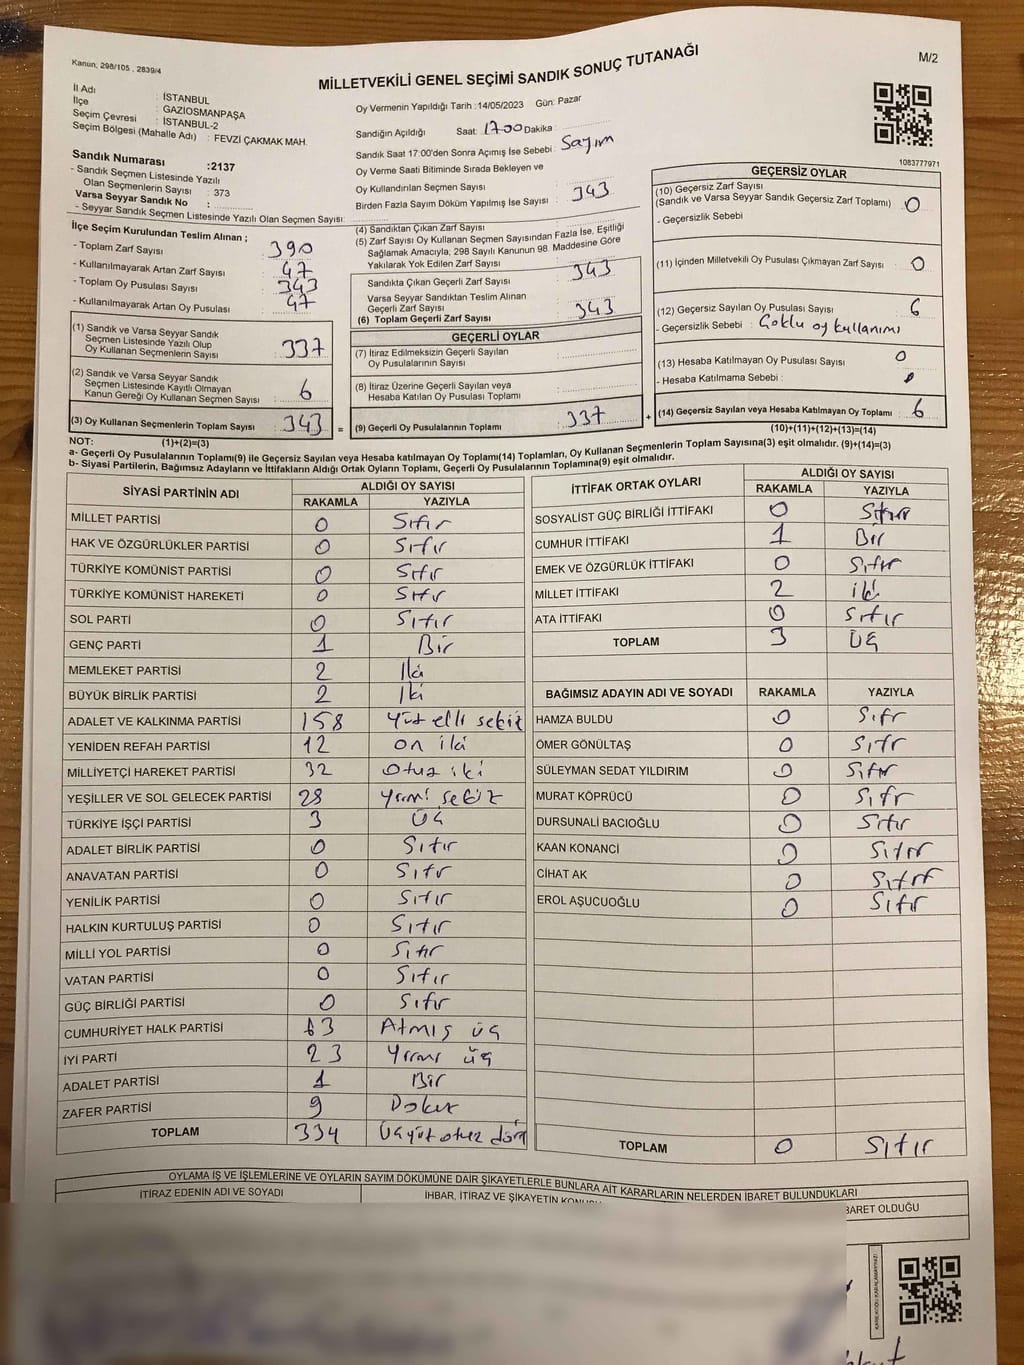 Kanun, 298/105 , 2839/4
MİLLETVEKİLİ GENEL SEÇİMİ SANDIK SONUÇ TUTANAĞI
M/2
İl Adı : İSTANBUL
İlçe : GAZİOSMANPAŞA
Seçim Çevresi : İSTANBUL-2
Seçim Bölgesi (Mahalle Adı) : FEVZİ ÇAKMAK MAH.
Oy Vermenin Yapıldığı Tarih :14/05/2023 Gün: Pazar
Sandığın Açıldığı Saat: 17 00 Dakika :
Sandık Saat 17:00'den Sonra Açımış İse Sebebi : Sayım
Oy Verme Saati Bitiminde Sırada Bekleyen ve
Oy Kullandırılan Seçmen Sayısı : 343
Birden Fazla Sayım Döküm Yapılmış İse Sayısı :
1083777971
Sandık Numarası :2137
- Sandık Seçmen Listesinde Yazılı
Olan Seçmenlerin Sayısı : 373
Varsa Seyyar Sandık No :
- Seyyar Sandık Seçmen Listesinde Yazılı Olan Seçmen Sayısı:
İlçe Seçim Kurulundan Teslim Alınan ;
- Toplam Zarf Sayısı : 390
- Kullanılmayarak Artan Zarf Sayısı : 47
- Toplam Oy Pusulası Sayısı : 343
- Kullanılmayarak Artan Oy Pusulası : 47
(1) Sandık ve Varsa Seyyar Sandık
Seçmen Listesinde Yazılı Olup
Oy Kullanan Seçmenlerin Sayısı : 337
(2) Sandık ve Varsa Seyyar Sandık
Seçmen Listesinde Kayıtlı Olmayan
Kanun Gereği Oy Kullanan Seçmen Sayısı : 6
(3) Oy Kullanan Seçmenlerin Toplam Sayısı : 343 =
(4) Sandıktan Çıkan Zarf Sayısı :
(5) Zarf Sayısı Oy Kullanan Seçmen Sayısından Fazla İse, Eşitliği
Sağlamak Amacıyla, 298 Sayılı Kanunun 98. Maddesine Göre
Yakılarak Yok Edilen Zarf Sayısı
Sandıkta Çıkan Geçerli Zarf Sayısı : 343
Varsa Seyyar Sandıktan Teslim Alınan
Geçerli Zarf Sayısı
(6) Toplam Geçerli Zarf Sayısı : 343
GEÇERLİ OYLAR
(7) İtiraz Edilmeksizin Geçerli Sayılan
Oy Pusulalarının Sayısı :
(8) İtiraz Üzerine Geçerli Sayılan veya
Hesaba Katılan Oy Pusulası Toplamı :
(9) Geçerli Oy Pusulalarının Toplamı : 337 +
GEÇERSİZ OYLAR
(10) Geçersiz Zarf Sayısı
(Sandık ve Varsa Seyyar Sandık Geçersiz Zarf Toplamı) : 0
- Geçersizlik Sebebi
(11) İçinden Milletvekili Oy Pusulası Çıkmayan Zarf Sayısı : 0
(12) Geçersiz Sayılan Oy Pusulası Sayısı : 6
- Geçersizlik Sebebi : Çoklu oy kullanımı
(13) Hesaba Katılmayan Oy Pusulası Sayısı : 0
- Hesaba Katılmama Sebebi :
(14) Geçersiz Sayılan veya Hesaba Katılmayan Oy Toplamı : 6
(10)+(11)+(12)+(13)=(14)
NOT: (1)+(2)=(3)
a- Geçerli Oy Pusulalarının Toplamı(9) ile Geçersiz Sayılan veya Hesaba katılmayan Oy Toplamı(14) Toplamları, Oy Kullanan Seçmenlerin Toplam Sayısına(3) eşit olmalıdır. (9)+(14)=(3)
b- Siyasi Partilerin, Bağımsız Adayların ve İttifakların Aldığı Ortak Oyların Toplamı, Geçerli Oy Pusulalarının Toplamına(9) eşit olmalıdır.
SİYASİ PARTİNİN ADI ALDIĞI OY SAYISI
RAKAMLA YAZIYLA
MİLLET PARTİSİ 0 Sıfır
HAK VE ÖZGÜRLÜKLER PARTİSİ 0 Sıfır
TÜRKİYE KOMÜNİST PARTİSİ 0 Sıfır
TÜRKİYE KOMÜNİST HAREKETİ 0 Sıfır
SOL PARTİ 0 Sıfır
GENÇ PARTİ 1 Bir
MEMLEKET PARTİSİ 2 İki
BÜYÜK BİRLİK PARTİSİ 2 İki
ADALET VE KALKINMA PARTİSİ 158 Yüz elli sekiz
YENİDEN REFAH PARTİSİ 12 on iki
MİLLİYETÇİ HAREKET PARTİSİ 32 Otuz iki
YEŞİLLER VE SOL GELECEK PARTİSİ 28 Yirmi sekiz
TÜRKİYE İŞÇİ PARTİSİ 3 Üç
ADALET BİRLİK PARTİSİ 0 Sıfır
ANAVATAN PARTİSİ 0 Sıfır
YENİLİK PARTİSİ 0 Sıfır
HALKIN KURTULUŞ PARTİSİ 0 Sıfır
MİLLİ YOL PARTİSİ 0 Sıfır
VATAN PARTİSİ 0 Sıfır
GÜÇ BİRLİĞİ PARTİSİ 0 Sıfır
CUMHURİYET HALK PARTİSİ 63 Atmış üç
İYİ PARTİ 23 Yirmi üç
ADALET PARTİSİ 1 Bir
ZAFER PARTİSİ 9 Dokuz
TOPLAM 334 Üçyüz otuz dört
İTTİFAK ORTAK OYLARI ALDIĞI OY SAYISI
RAKAMLA YAZIYLA
SOSYALİST GÜÇ BİRLİĞİ İTTİFAKI 0 Sıfır
CUMHUR İTTİFAKI 1 Bir
EMEK VE ÖZGÜRLÜK İTTİFAKI 0 Sıfır
MİLLET İTTİFAKI 2 iki
ATA İTTİFAKI 0 Sıfır
TOPLAM 3 Üç
BAĞIMSIZ ADAYIN ADI VE SOYADI RAKAMLA YAZIYLA
HAMZA BULDU 0 Sıfır
ÖMER GÖNÜLTAŞ 0 Sıfır
SÜLEYMAN SEDAT YILDIRIM 0 Sıfır
MURAT KÖPRÜCÜ 0 Sıfır
DURSUNALİ BACIOĞLU 0 Sıfır
KAAN KONANCİ 0 Sıfır
CİHAT AK 0 Sıfır
EROL AŞUCUOĞLU 0 Sıfır
TOPLAM 0 Sıfır
OYLAMA İŞ VE İŞLEMLERİNE VE OYLARIN SAYIM DÖKÜMÜNE DAİR ŞİKAYETLERLE BUNLARA AİT KARARLARIN NELERDEN İBARET BULUNDUKLARI
İTİRAZ EDENİN ADI VE SOYADI
İHBAR, İTİRAZ VE ŞİKAYETİN
BARET OLDUĞU